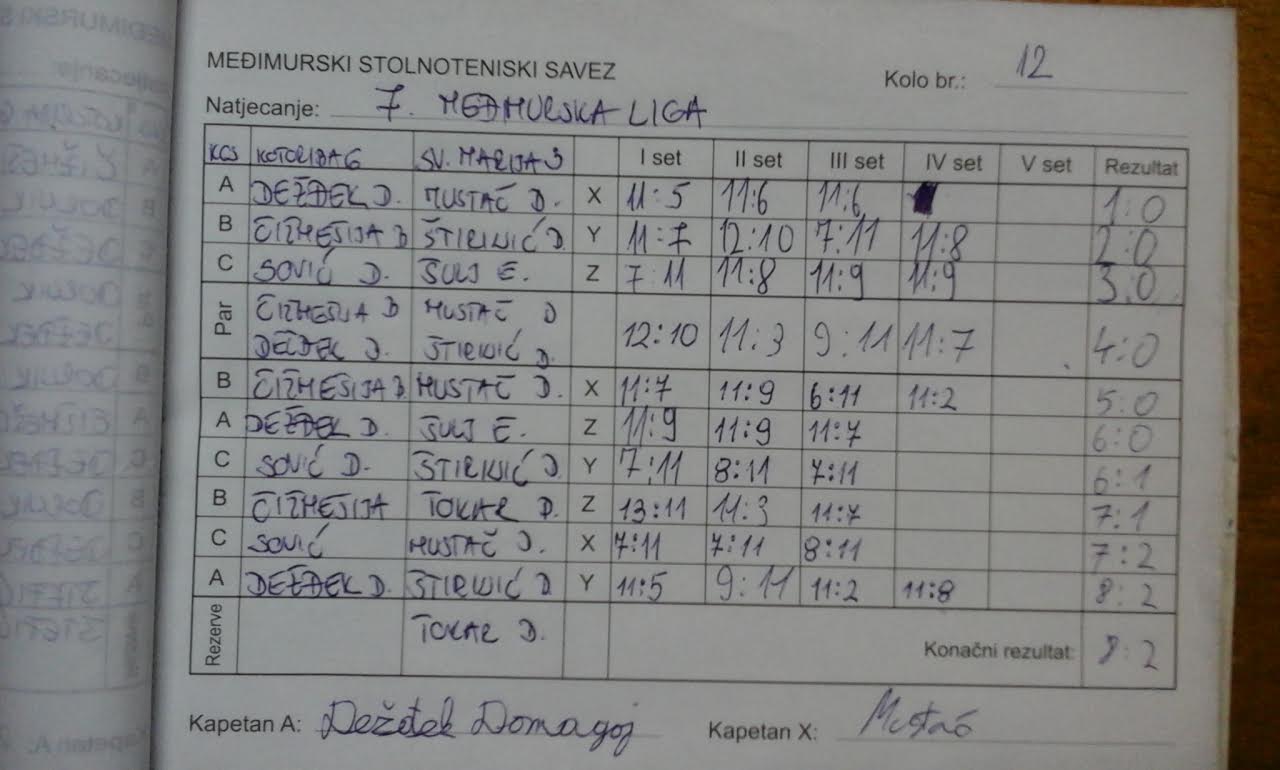 MEĐIMURSKI STOLNOTENISKI SAVEZ
Kolo br.: 12
Natjecanje: 7. MEĐIMURSKA LIGA
KCS KOTORIBA 6 SV. MARIJA 3 I set II set III set IV set V set Rezultat
A DEŽĐEK D. MUSTAČ D. X 11:5 11:6 11:6 1:0
B ČIŽMEŠIJA D ŠTIRKIĆ D. Y 11:7 12:10 7:11 11:8 2:0
C SOVIĆ D. ŠULJ E. Z 7:11 11:8 11:9 11:9 3:0
Par ČIŽMEŠIJA D MUSTAČ D
DEŽĐEK D. ŠTIRKIĆ D. 12:10 11:3 9:11 11:7 4:0
B ČIŽMEŠIJA D. MUSTAČ D. X 11:7 11:9 6:11 11:2 5:0
A DEŽĐEK D. ŠULJ E. Z 11:9 11:9 11:7 6:0
C SOVIĆ D. ŠTIRKIĆ D. Y 7:11 8:11 7:11 6:1
B ČIŽMEŠIJA TOKAR D. Z 13:11 11:3 11:7 7:1
C SOVIĆ MUSTAČ D. X 7:11 7:11 8:11 7:2
A DEŽĐEK D. ŠTIRKIĆ D Y 11:5 9:11 11:2 11:8 8:2
Rezerve TOKAR D. Konačni rezultat: 8:2
Kapetan A: Dežđek Domagoj Kapetan X: Mustač